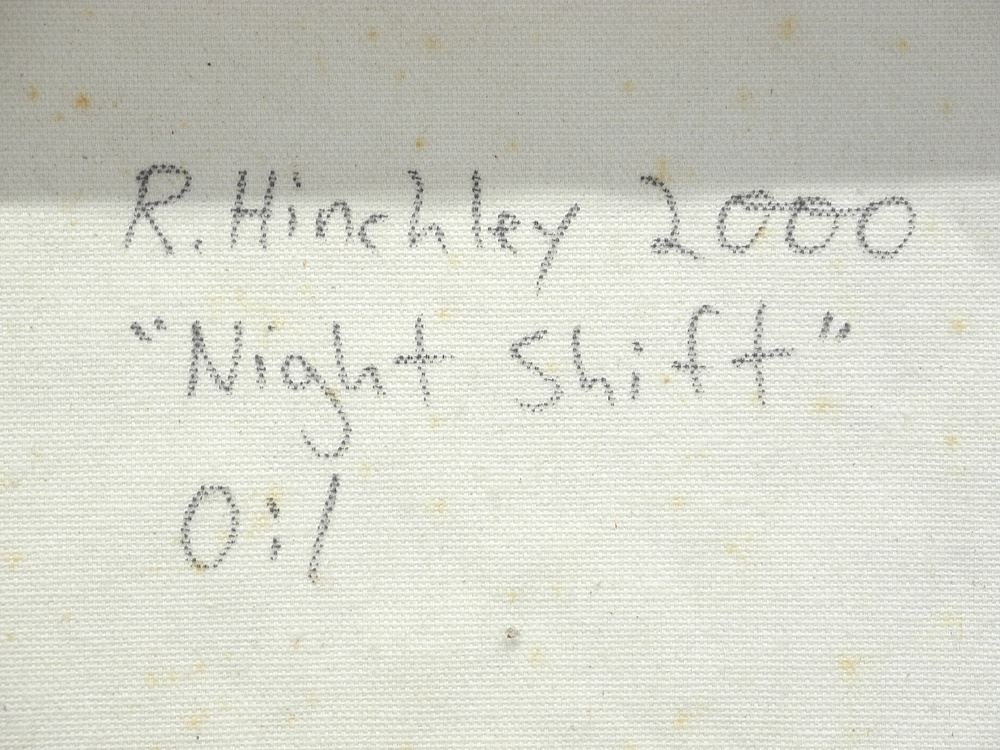 R. Hinchley 2000
"Night Shift"
Oil